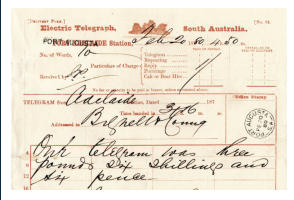 [DELIVERY FORM.] [No. 24.
Electric Telegraph, South Australia.
PORT AUGUSTA Station, Feb 20 80 4.50
No. of Words, 10 Telegraph
Repeating
Particulars of Charge Reply
Porterage
Receive by Cab or Boat Hire
TELEGRAM from Adelaide Station, Dated 187
Time handed in
Addressed to Bignell & Young
Our telegram was three
pounds six shillings and
six pence
PORT AUGUSTA